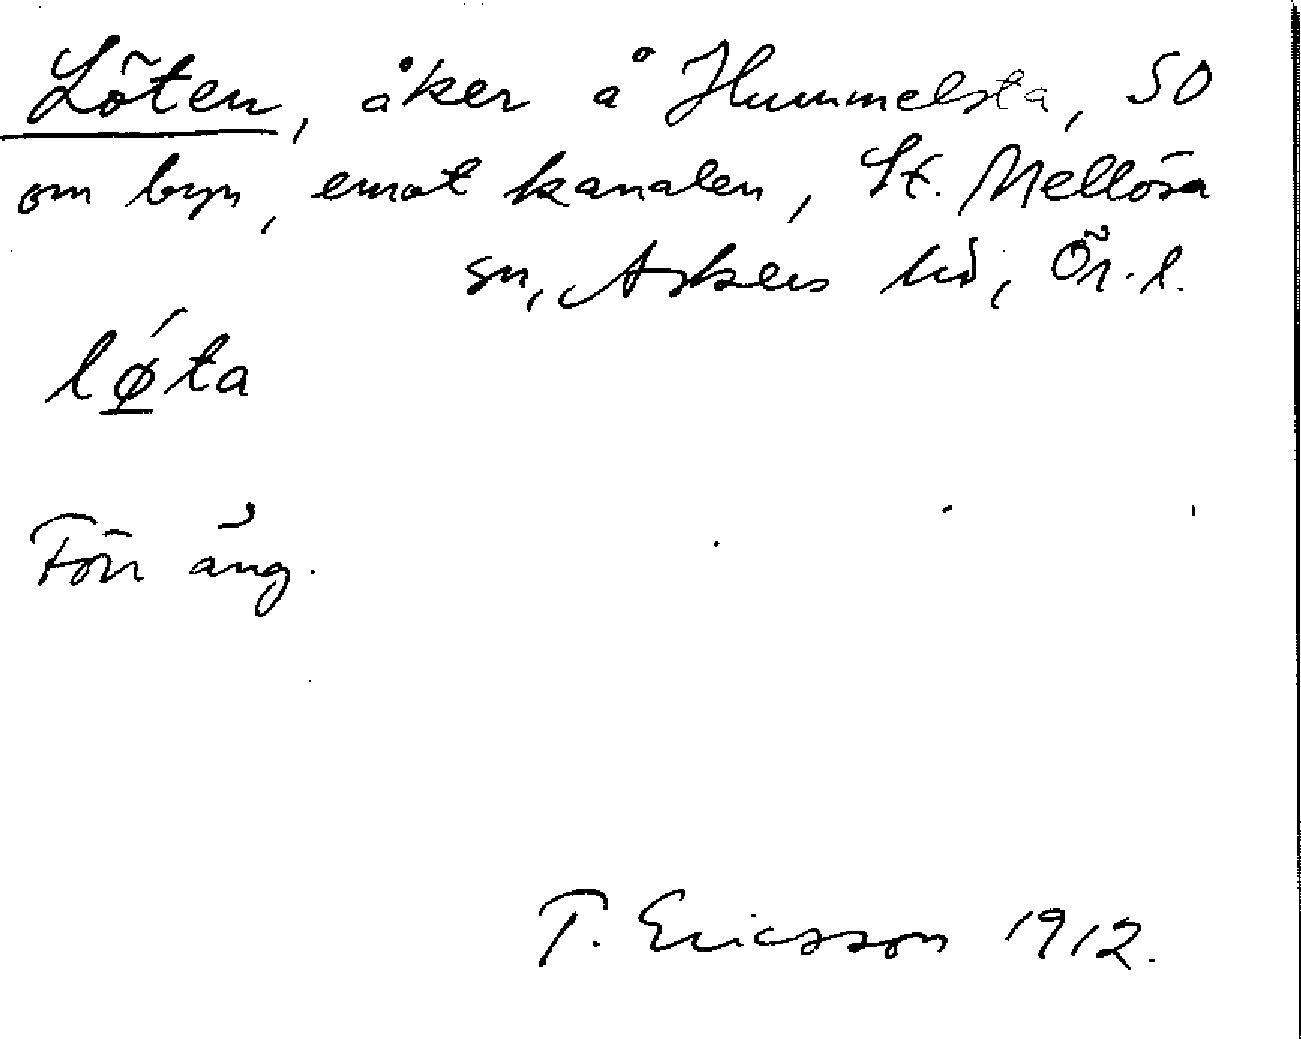 Löten, åker å Hummelsta, SO
om byn, emot kanalen, St. Mellösa
sn, Askers hd, Ör. l.
lǿ̲ta
Förr äng.
T. Ericsson 1912.